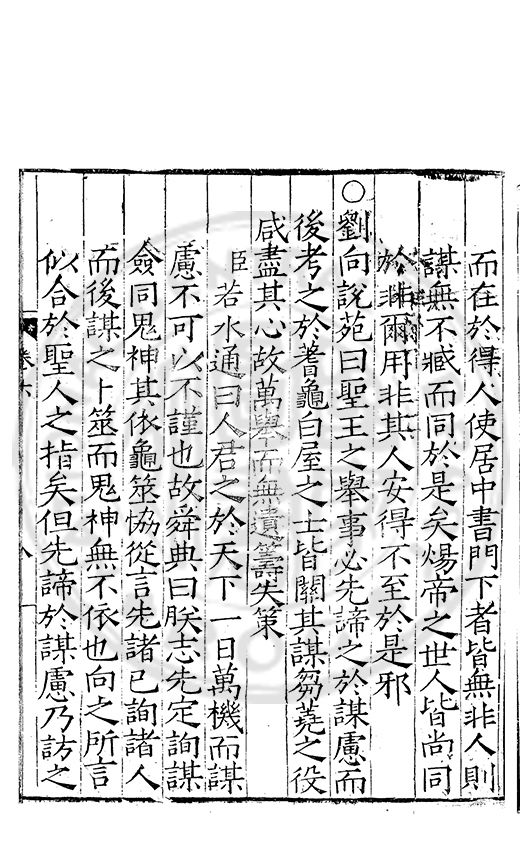 而在於得人使居中書門下者皆無非人則
謀無不臧而同於是矣煬帝之世人皆尚同
於非爾用非其人安得不至於是邪
○劉向說苑曰聖王之舉事必先諦之於謀慮而
後考之於蓍龜白屋之士皆關其謀芻蕘之役
咸盡其心故萬舉而無遺籌失策
臣若水通曰人君之於天下一日萬機而謀
慮不可以不謹也故舜典曰朕志先定詢謀
僉同鬼神其依龜筮協從言先諸已詢諸人
而後謀之卜筮而鬼神無不依也向之所言
似合於聖人之指矣但先諦於謀慮乃訪之
卷六
八